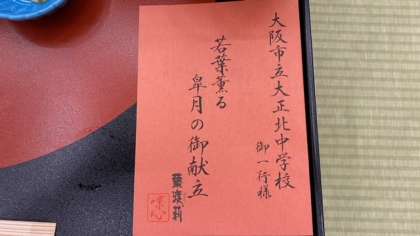 大阪市立大正北中学校
御一行様
若葉薫る
皐月の御献立